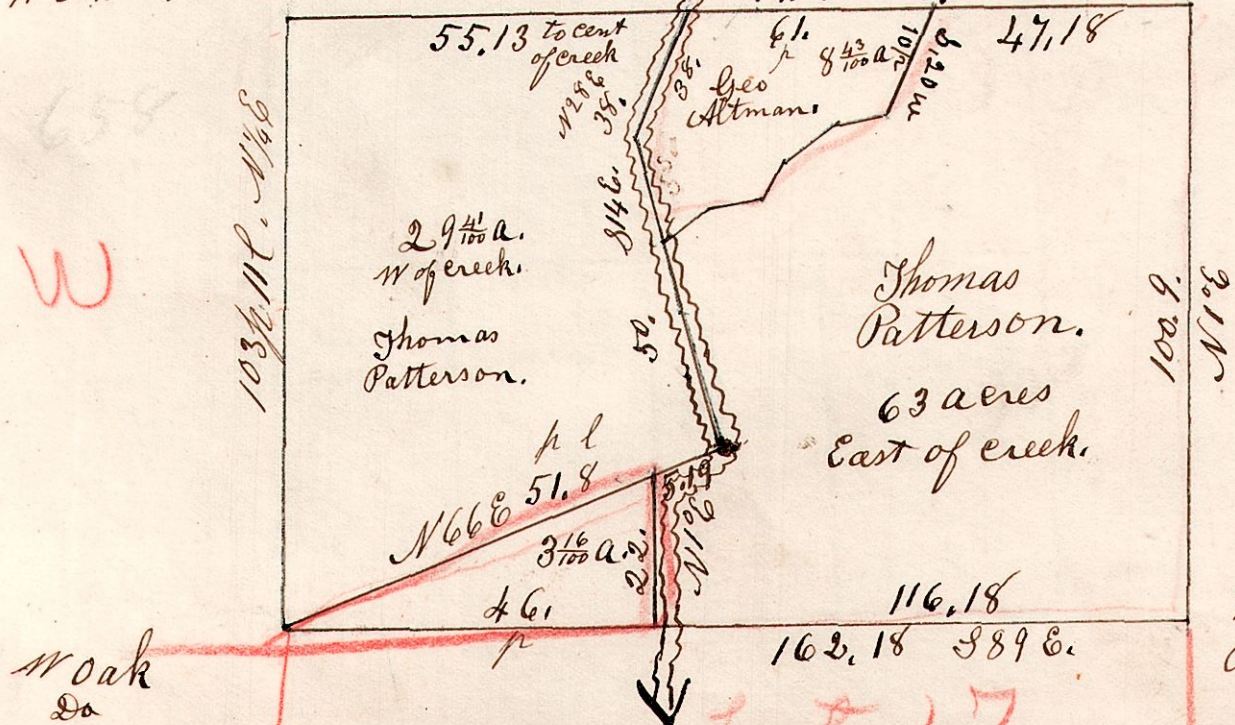 55.13 to cent
of creek
61.
p
47,18
8 43/100 a
10p
S,20 W
Geo
Altman.
N28E
38.
38.
658
103p 11 l. N 1/4 E
W
S14E.
50.
29 41/100 a.
W of creek.
Thomas
Patterson.
Thomas
Patterson.
63 acres
East of creek.
100.6
N1.E
p l
N66E 51.8
5.19
3 16/100 a.
22.
N1.E
46.
p
116,18
162,18 S89E.
W oak
Do